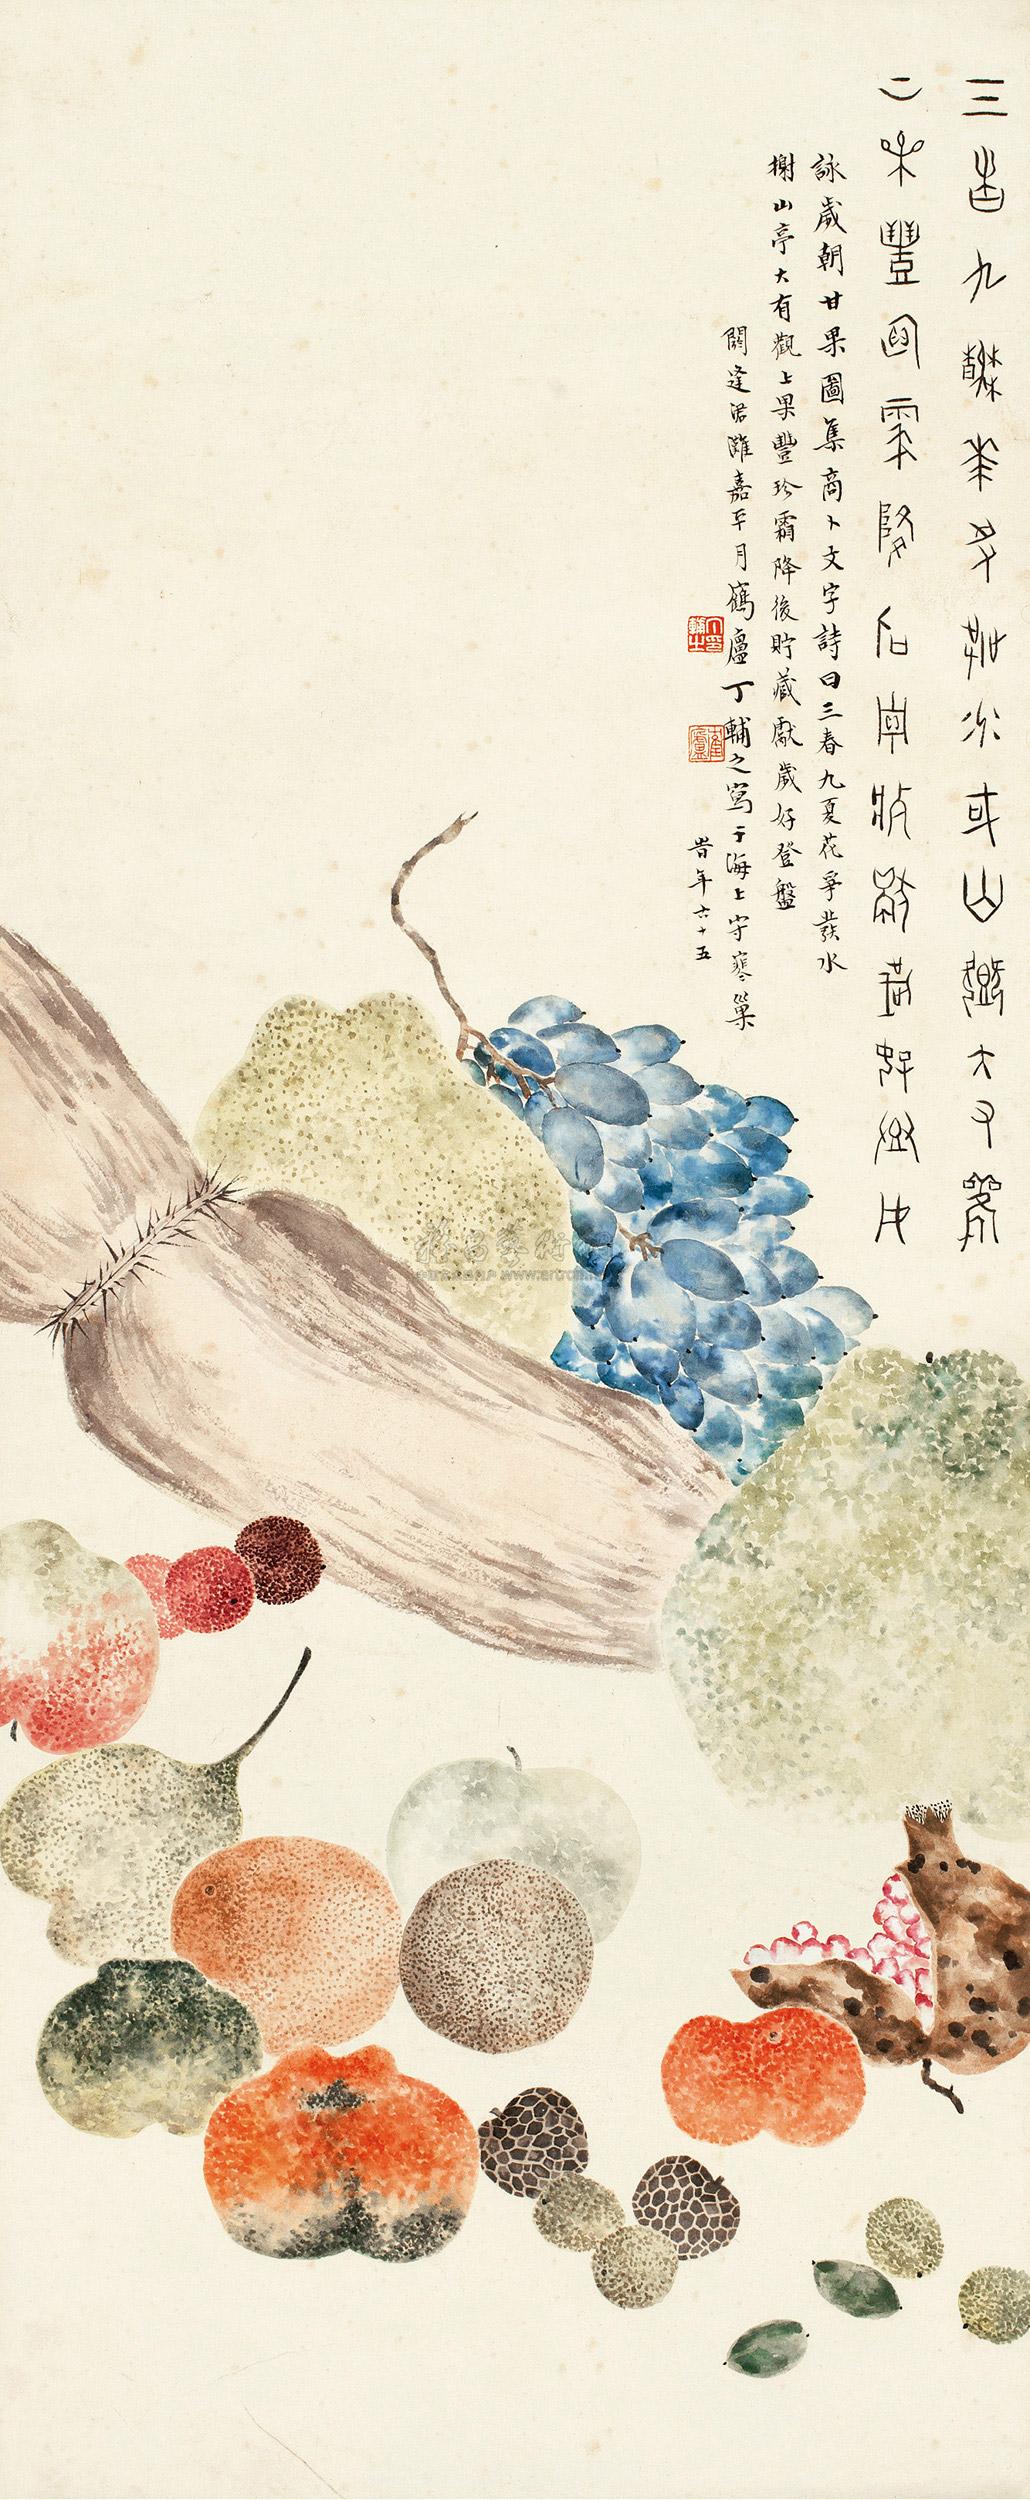 三春九夏花爭發水榭山亭大有觀
上果豐珍霜降後貯藏獻歲好登盤
詠歲朝甘果圖集商卜文字詩曰三春九夏花爭發水
榭山亭大有觀上果豐珍霜降後貯藏獻歲好登盤
閼逢涒灘嘉平月鶴廬丁輔之寫于海上守寒巢
旹年六十五
丁輔之印
寉廬